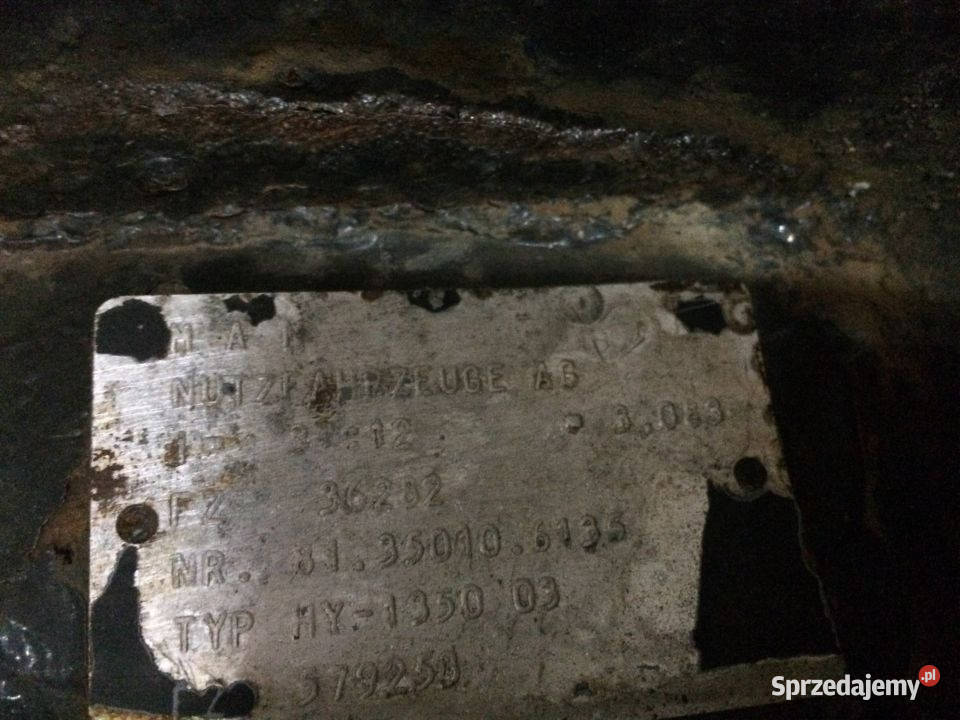 M A N
NUTZFAHRZEUGE AG
37:12 3.083
FZ 36282
NR. 81.35010.6135
TYP HY-1350 03
579250
Sprzedajemy.pl